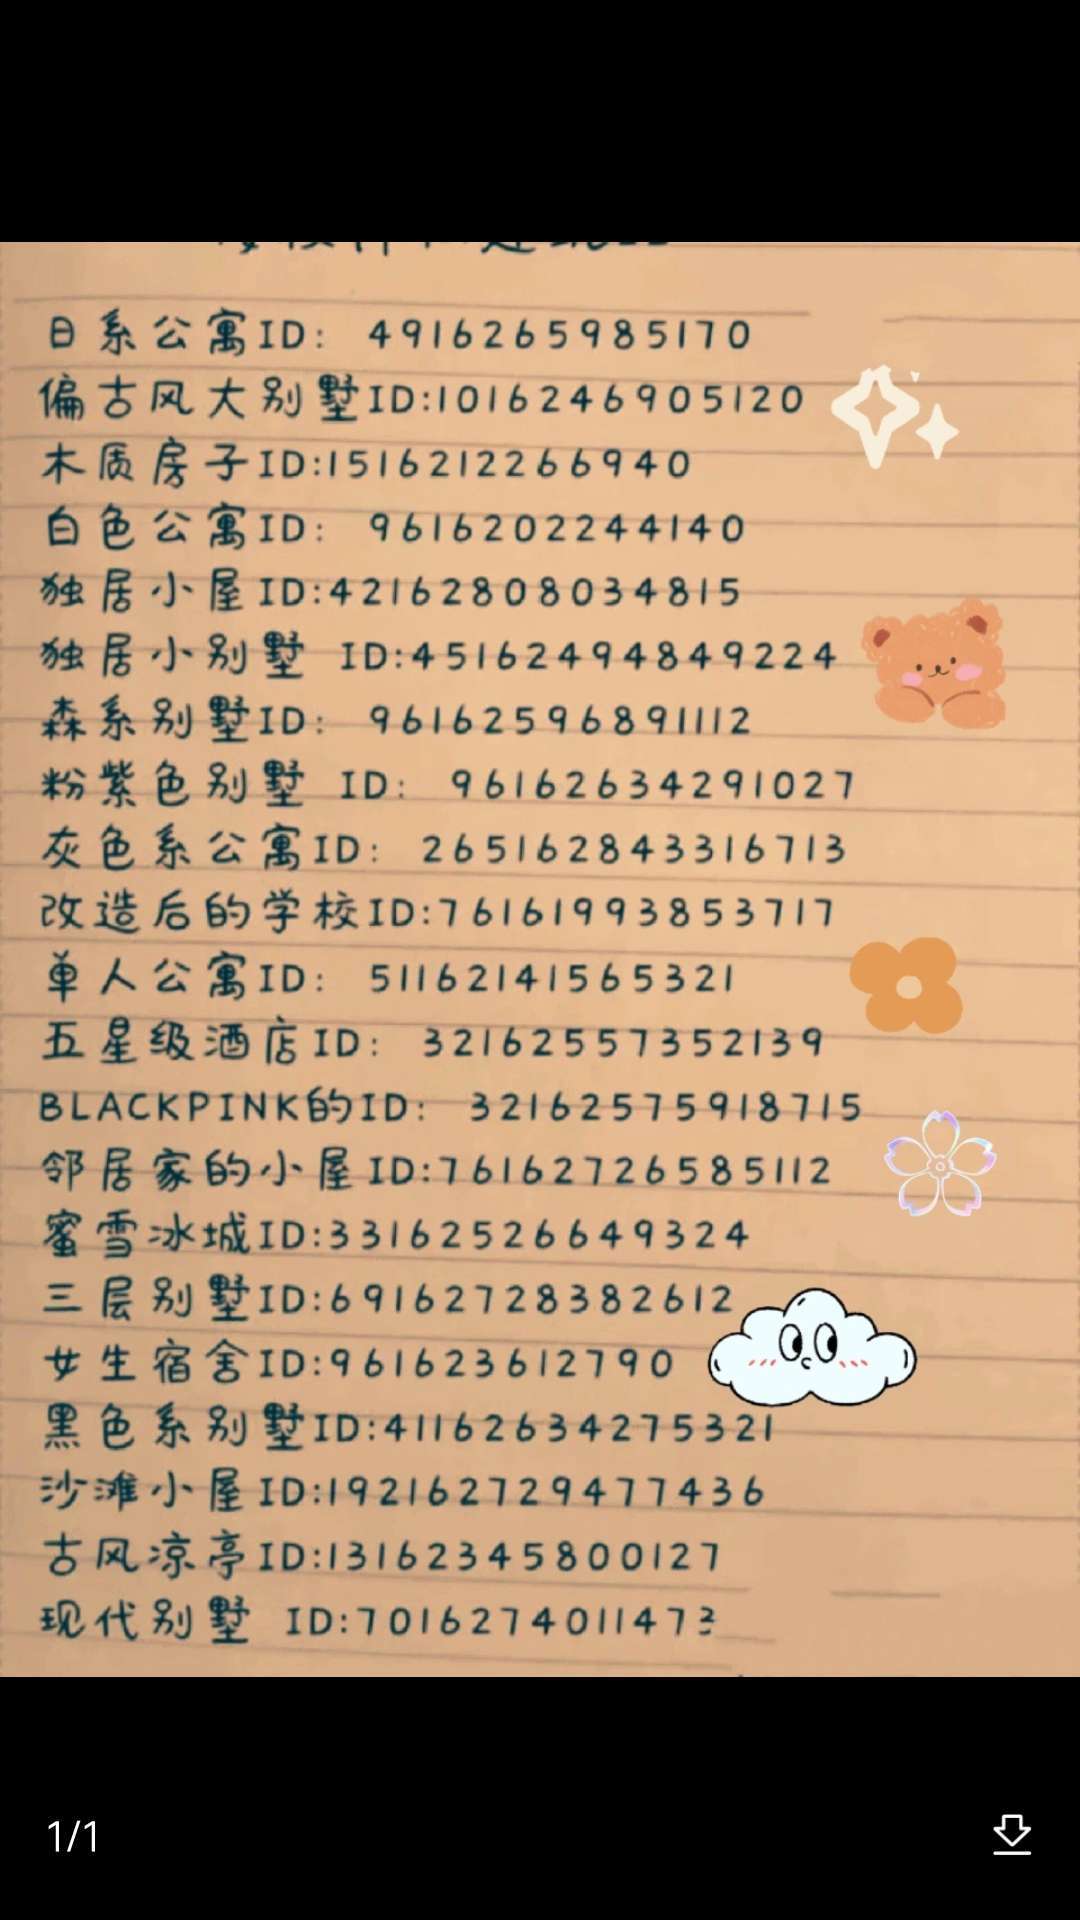 日系公寓ID: 4916265985170
偏古风大别墅ID:1016246905120
木质房子ID:1516212266940
白色公寓ID: 9616202244140
独居小屋ID:42162808034815
独居小别墅 ID:45162494849224
森系别墅ID: 96162596891112
粉紫色别墅 ID: 96162634291027
灰色系公寓ID: 265162843316713
改造后的学校ID:76161993853717
单人公寓ID: 51162141565321
五星级酒店ID: 32162557352139
BLACKPINK的ID: 32162575918715
邻居家的小屋ID:76162726585112
蜜雪冰城ID:33162526649324
三层别墅ID:69162728382612
女生宿舍ID:961623612790
黑色系别墅ID:41162634275321
沙滩小屋ID:192162729477436
古风凉亭ID:13162345800127
现代别墅 ID:7016274011473
1/1